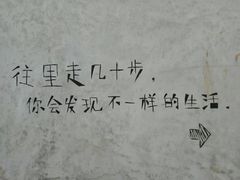 往里走几十步，
你会发现不一样的生活．